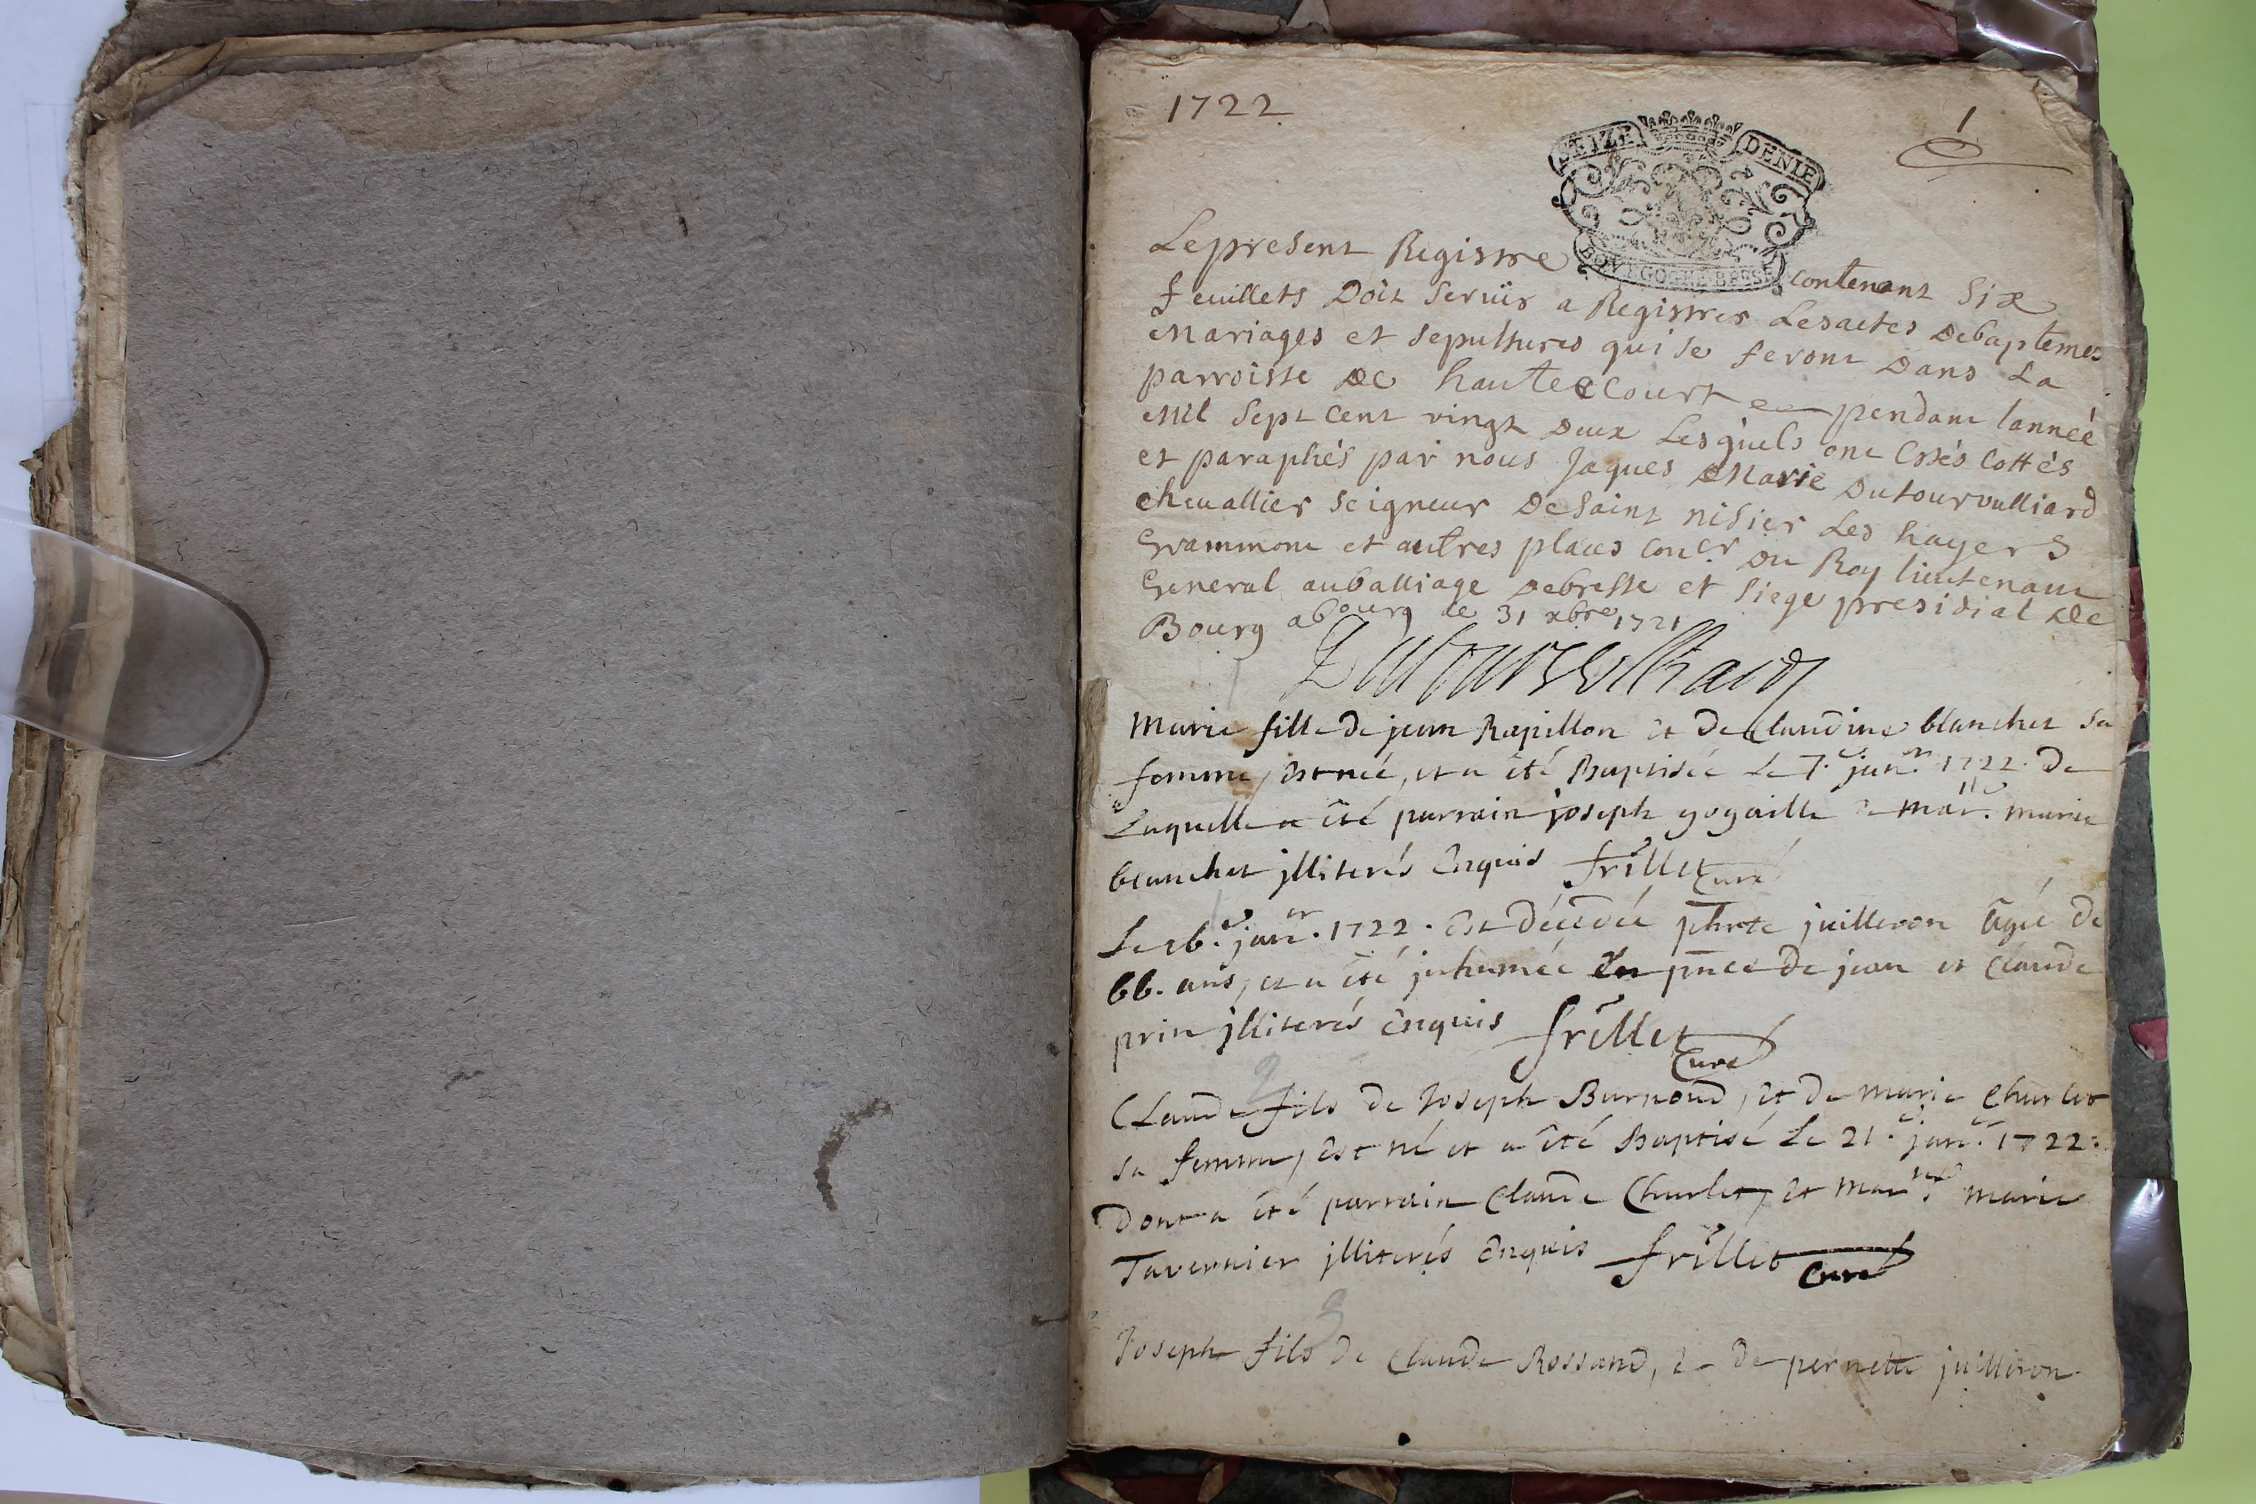 1722
1
SEIZE DENIE
BOURGOGNE BRESSE
Lepresent Registre contenant Six
feuillets Doit Servir a Registrer Lesactes Debaptemes
Mariages et Sepultures qui se feront Dans La
parroisse De hauteCourt pendant lanneé
Mil Sept Cent vingt Deux Lesquels ont Estés Cottés
et paraphés par nous Jaques Marie Dutourvulliard
chevallier Seigneur DeSaint nisier Les
Grammont et autres places Coner Du Roy lieutenant
General aubailliage Debresse et Siege presidial De
Bourg abourg ce 31 xbre 1721
Dutourvulliard
Marie fille de jean Rapillon et de Claudine blanchet Sa
femme, est neé, et a êté Baptisée Le 7.e janer 1722. de
Laquelle a êté parrain joseph gogaille & mar.ne marie
blanchet jlliterés Enquis frillet Curé
Le 16.e janer. 1722. est décedée juilleron âgée de
66. ans, et a êté jnhumée En pnce de jean et Claude
prin jlliterés Enquis frillet
Curé
CLaude fils de Joseph Burnoud, et de marie Charlet
sa femme, est né et a êté Baptisé Le 21.e janer. 1722.
Dont a êté parrain Claude Charlet, et mar.ne marie
Tavernier jlliterés Enquis frillet Curé
2
3
Joseph fils de Claude Rossand, & de pernette juilliron